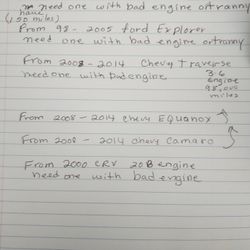 need one with bad engine ortranny
have
(150 miles)
From 98 - 2005 ford Explorer
need one with bad engine ortranny
From 2008 - 2014 Chevy Traverse
need one with bad engine
3.6
engine
98,000
miles
From 2008 - 2014 chevy EQuanox
From 2008 - 2014 chevy Camaro
From 2000 CRV 20B engine
need one with bad engine